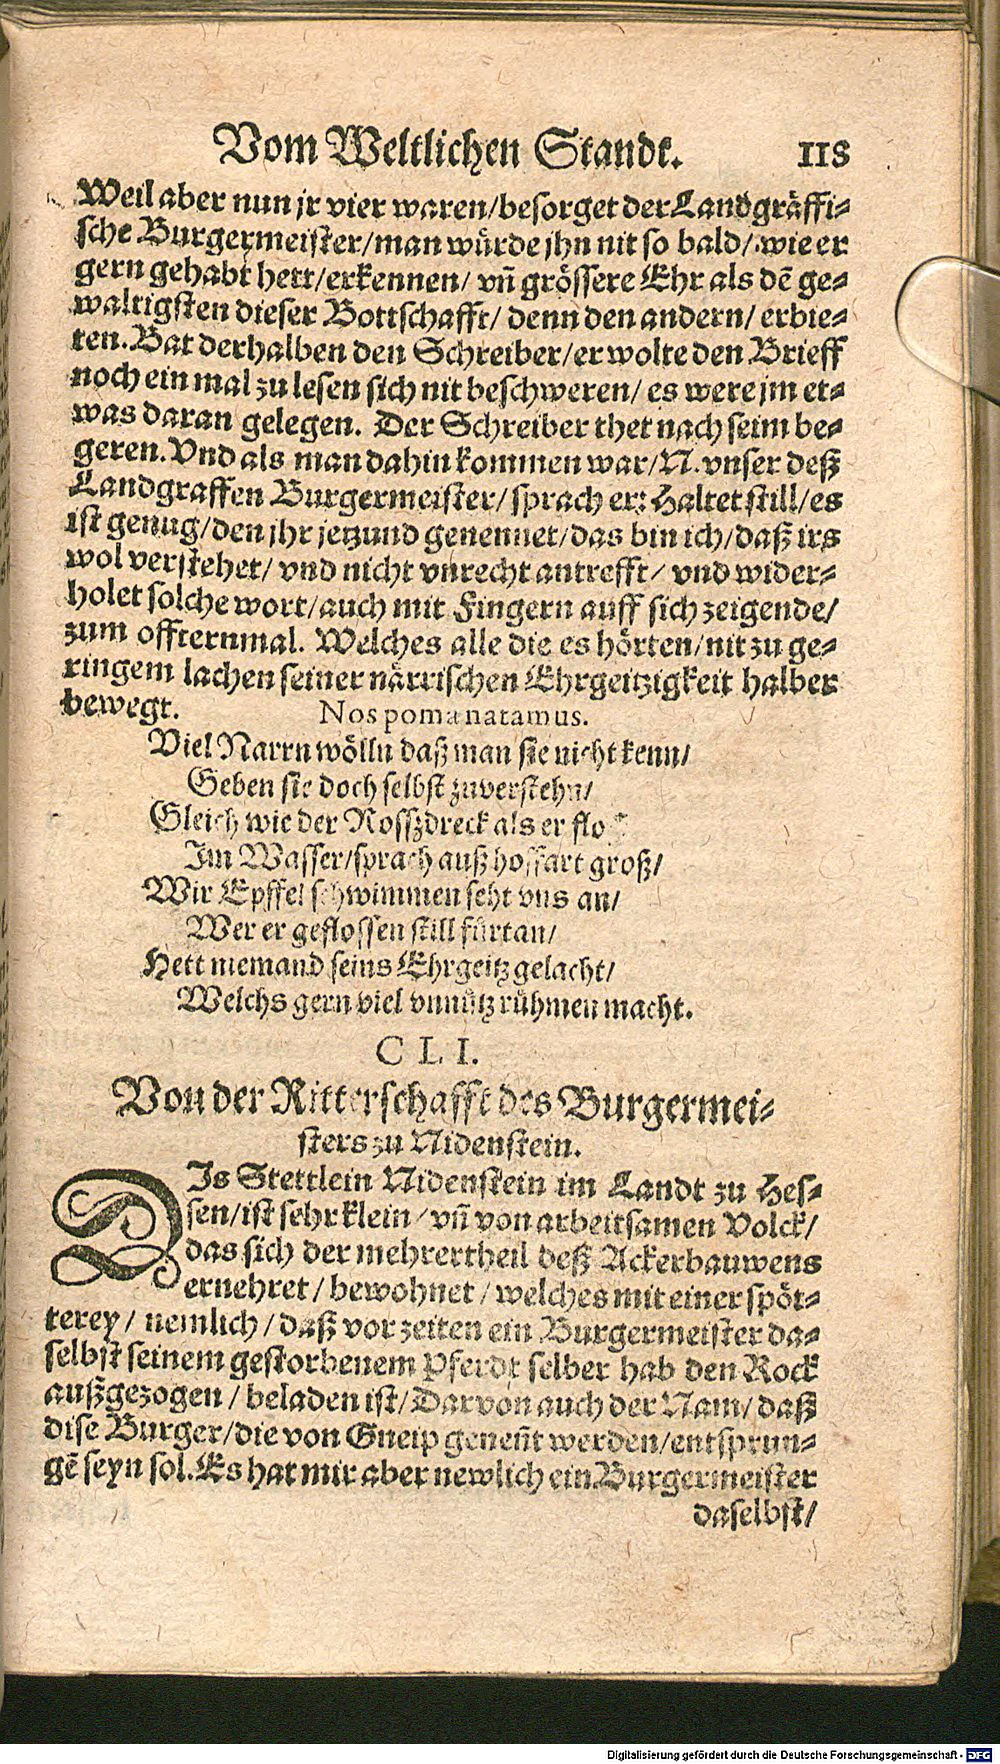 Vom Weltlichen Stande. 118
Weil aber nun jr vier waren/besorget der Landgräffi-
sche Burgermeister/man würde jhn nit so bald/wie er
gern gehabt hett/erkennen/ vñ grössere Ehr als dẽ ge-
waltigsten dieser Bottschafft/ denn den andern/ erbie-
ten. Bat derhalben den Schreiber/er wolte den Brieff
noch ein mal zu lesen sich nit beschweren/ es were jm et-
was daran gelegen. Der Schreiber thet nach seim be-
geren. Vnd als man dahin kommen war/N. vnser deß
Landgraffen Burgermeister/ sprach er: Haltet still/es
ist genug/den jhr jetzund genennet/das bin ich/daß irs
wol verstehet/ vnd nicht vnrecht antrefft/ vnd wider-
holet solche wort/auch mit Fingern auff sich zeigende/
zum offternmal. Welches alle die es hörten/nit zu ge-
ringem lachen seiner närrischen Ehrgeitzigkeit halber
bewegt. Nos poma natamus.
Viel Narrn wölln daß man sie nicht kenn/
Geben sie doch selbst zuverstehn/
Gleich wie der Rosszdreck als er
Im Wasser/sprach auß hoffart groß/
Wir Epffel schwimmen seht vns an/
Wer er geflossen still fürtan/
Hett niemand seins Ehrgeitz gelacht/
Welchs gern viel vnnütz rühmen macht.
CLI.
Von der Ritterschafft des Burgermei-
sters zu Nidenstein.
DIs Stettlein Nidenstein im Landt zu Hes-
sen/ist sehr klein/vñ von arbeitsamen Volck/
das sich der mehrertheil deß Ackerbauwens
ernehret/ bewohnet/ welches mit einer spöt-
terey/ nemlich/daß vor zeiten ein Burgermeister da-
selbst seinem gestorbenem Pferdt selber hab den Rock
außgezogen/ beladen ist/Darvon auch der Nam/ daß
dise Burger/die von Gneip geneñt werden/entsprun-
gẽ seyn sol. Es hat mir aber newlich ein Burgermeister
daselbst/
Digitalisierung gefördert durch die Deutsche Forschungsgemeinschaft - DFG